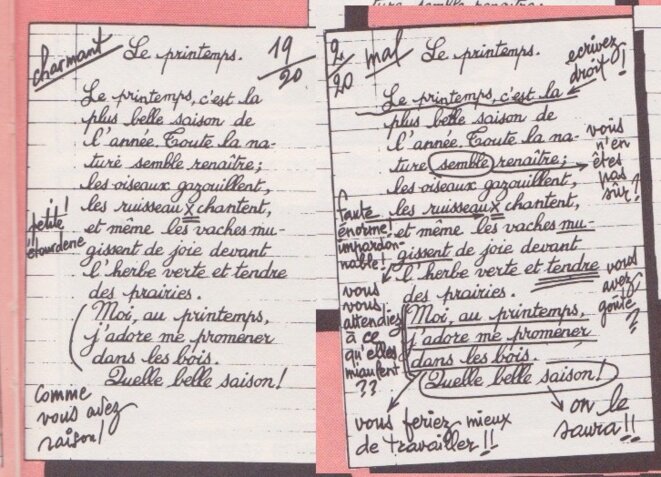 ture semble renaître;
charmant
Le printemps.
19/20
Le printemps, c'est la
plus belle saison de
l'année. Toute la na-
ture semble renaître;
les oiseaux gazouillent,
les ruisseaux chantent,
et même les vaches mu-
gissent de joie devant
l'herbe verte et tendre
des prairies.
Moi, au printemps,
j'adore me promener
dans les bois.
Quelle belle saison!
petite
étourderie!
Comme
vous avez
raison!
2/20
mal
Le printemps.
écrivez
droit!
Le printemps, c'est la
plus belle saison de
l'année. Toute la na-
ture semble renaître;
les oiseaux gazouillent,
les ruisseaux chantent,
et même les vaches mu-
gissent de joie devant
l'herbe verte et tendre
des prairies.
Moi, au printemps,
j'adore me promener
dans les bois.
Quelle belle saison!
vous
n'en
êtes
pas
sûr?
faute
énorme!
impardon-
nable!
vous
vous
attendiez
à ce
qu'elles
miaulent
??
vous
avez
goûté
?
vous feriez mieux
de travailler!!
on le
saura!!